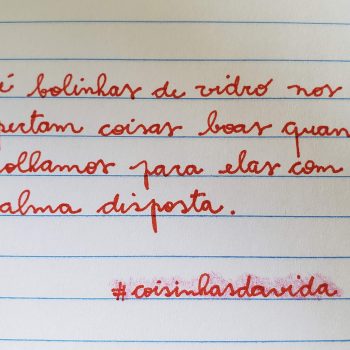 é bolinhas de vidro nos
pertam coisas boas quan
olhamos para elas com
alma disposta.
#coisinhasdavida